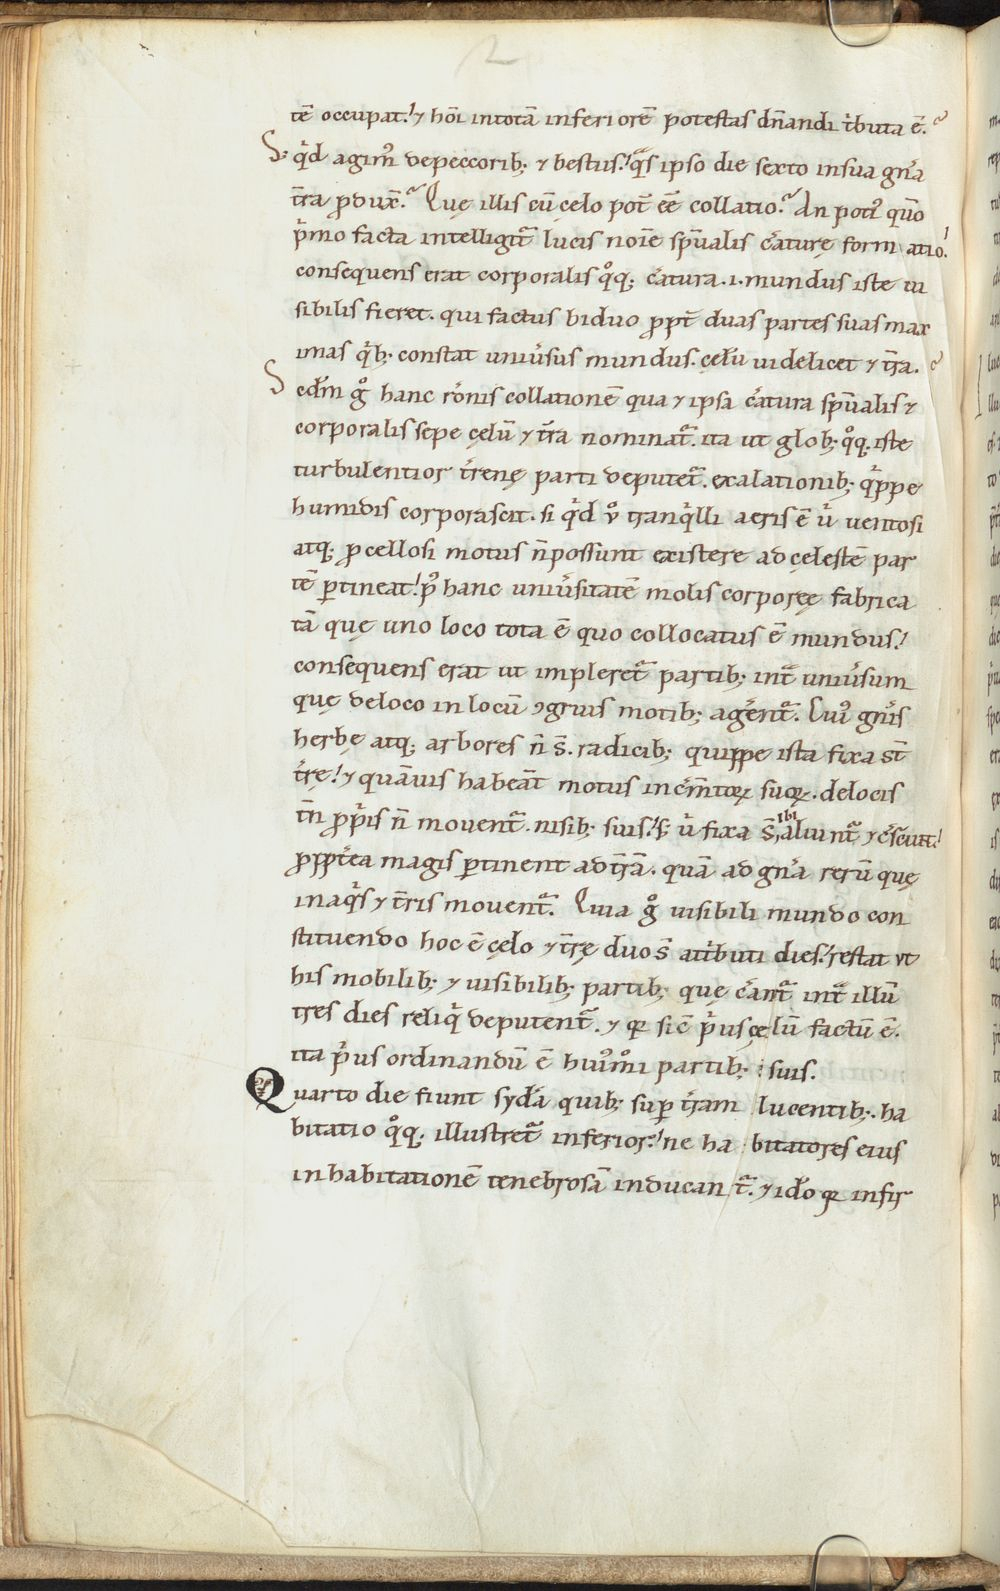 tē occupat.' ⁊ hōi in totā inferiorē potestas dn̄andi t̓buta ē.
S; q̓d agim᷒ de peccorib; ⁊ bestiis.' q̄s ipso die sexto in sua gn̄a
t̄ra ꝓdux̄. Quę illis cū cęlo pot̄ eē collatio. An poti᷒ qm̄o
p̓mo facta intelligit᷑ lucis noīe sp̄ualis c̓aturę form atio.
consequens erat corporalis q̊q; c̓atura .i. mundus iste ui
sibilis fieret. qui factus biduo ꝓpt̄ duas partes suas max
imas q̓b; constat uniu̓sus mundus. cęlū uidelicet ⁊ t̄ra.
S edm̄ g̊ hanc r̄onis collationē qua ⁊ ipsa c̓atura sp̄ualis ⁊
corporalis sepe cęlū ⁊ t̄ra nominat᷑. ita ut glob; q̊q; iste
turbulentior t̓renę parti deputet᷑. exalationib; q̓ppe
humidis corporascit. si q̓d ů tranq̓lli aeris ē u̓ uentosi
atq; ꝓcellosi motus n̄ possunt existere ad cęlestē par
tē ꝑtineat.' p᷒ hanc uniu̓sitatē molis corporeę fabrica
tā quę uno loco tota ē quo collocatus ē mundus.'
consequens erat ut impleret᷑ partib; int̄ uniu̓sum
quę de loco in locū ꝯgruis motib; agerent᷑. Cui᷒ gn̄is
herbę atq; arbores n̄ s̄. radicib; quippe ista fixa st̄
t̓rę.' ⁊ quāuis habeāt motus in c̓m̄toꝝ suoꝝ. de locis
tn̄ ꝓp̓is n̄ mouent᷑. nisib; suis.' s; u̓ fixa s̄, ibi alunt᷑ ⁊ c̓scunt.'
ꝓpt̓ea magis ꝑtinent ad t̄rā. quā ad gn̄a rerū quę
in aq̓s ⁊ t̄ris mouent᷑. Quia g̊ uisibili mundo con
stituendo hoc ē cęlo ⁊ t̄rę duo s̄ att̓buti dies.' restat ut
his mobilib; ⁊ uisibilib; partib; quę c̓ant᷑ int̄ illū
tres dies reliq̓ deputent᷑. ⁊ qꝛ sic̄ p̓us cę lū factū ē.
ita p̓us ordinandū ē hui᷒m̊i partib; suis.
Quarto die fiunt syd̓a quib; sup t̄ram lucentib;. ha
bitatio q̊q; illustret᷑ inferior.' ne ha bitatores eius
in habitationē tenebrosā inducan t᷑. ⁊ idō qꝛ infir